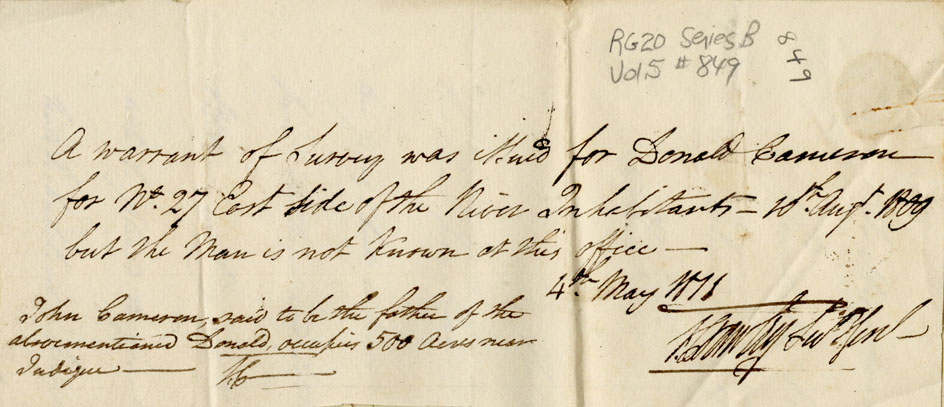 RG20 Series B
Vol.5 #849
849
A warrant of Survey was issued for Donald Cameron
for No. 27 East side of the River Inhabitants – 10th Augt. 1809
but the Man is not Known at this office —
4th May 1811
John Cameron, said to be the father of the
abovementioned Donald, occupies 500 Acres near
Judique —